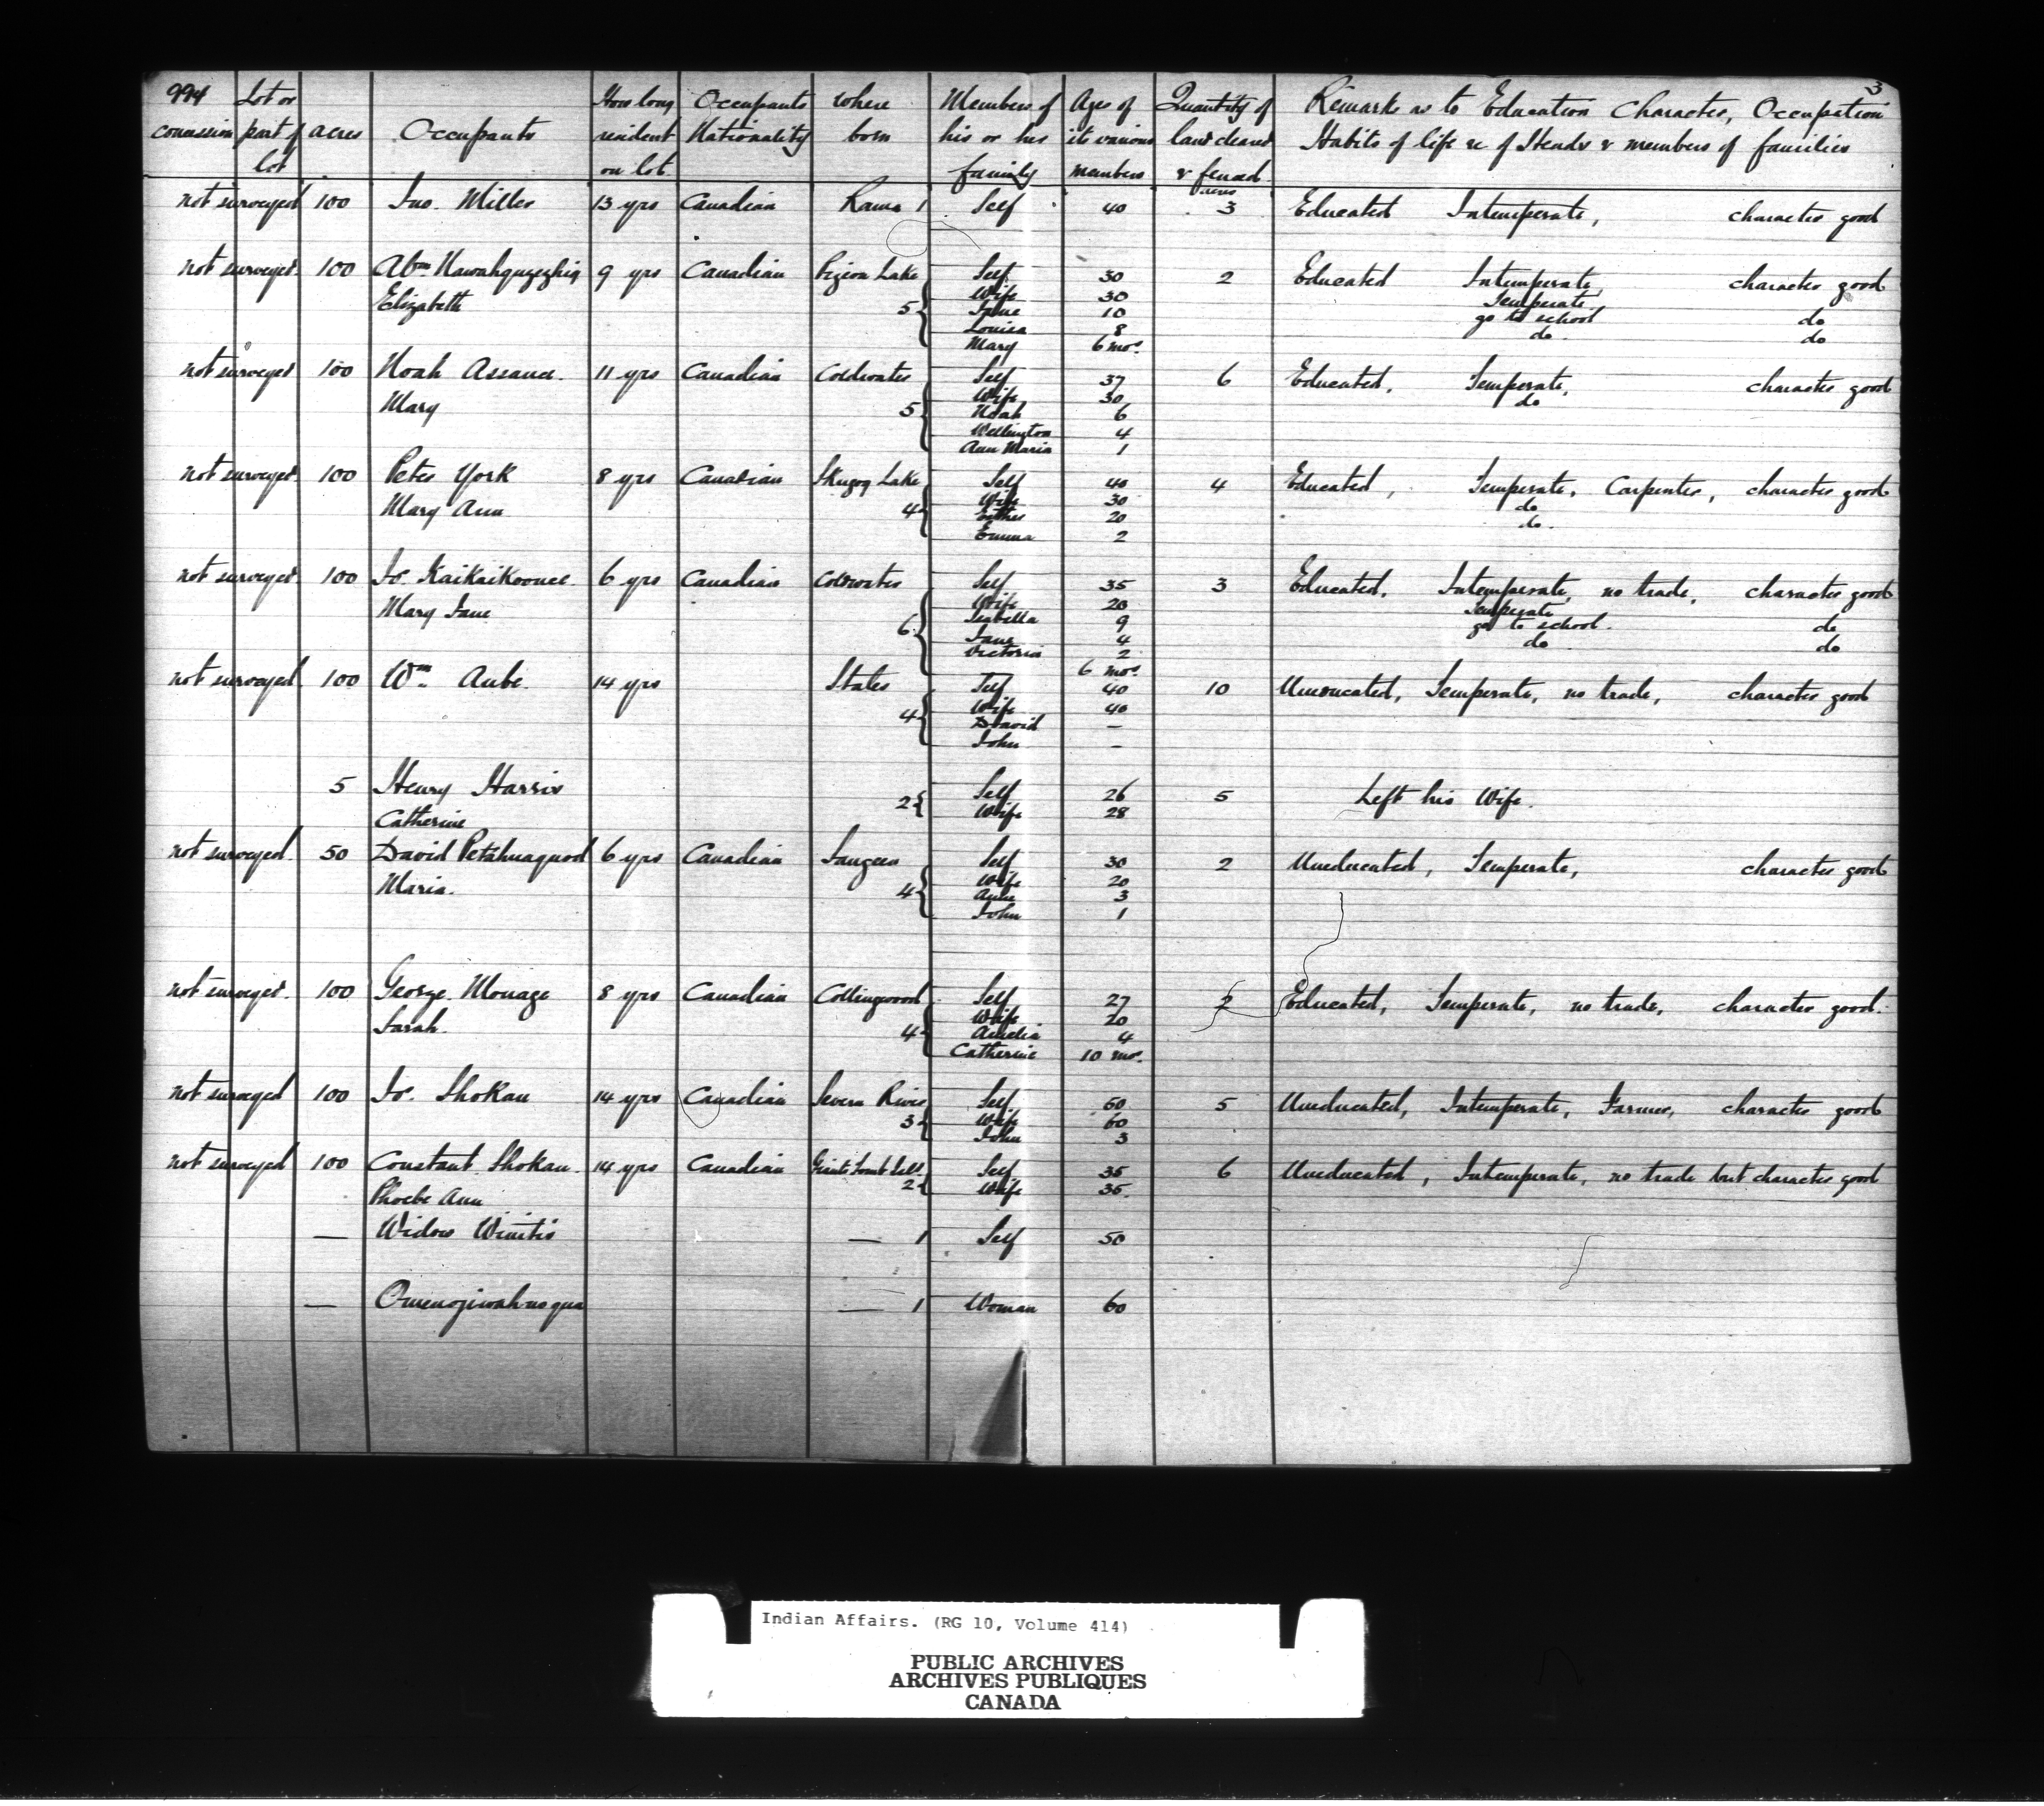 994 Lot or How long Occupants where Members of Ages of Quantity of Remarks as to Education Character, Occupation 3
concession part of acres Occupants resident Nationality born his or her its various land cleared Habits of life &c of Heads & members of families
lot on lot family members & fenced
acres
not surveyed 100 Jno. Miller 13 yrs Canadian Rama 1 Self 40 3 Educated Intemperate, character good
not surveyed 100 Abm Nawahquagezhig 9 yrs Canadian Pigeon Lake Self 30 2 Educated Intemperate, character good
Elizabeth 5 Wife 30 Temperate
Jane 10 go to school do
Louisa 8 do do
Mary 6 mos.
not surveyed 100 Noah Assance 11 yrs Canadian Coldwater Self 37 6 Educated, Temperate, character good
Mary 5 Wife 30 do
Noah 6
Wellington 4
Ann Maria 1
not surveyed 100 Peter York 8 yrs Canadian Skugog Lake Self 40 4 Educated, Temperate, Carpenter, character good
Mary Ann 4 Wife 30 do
Esther 20 do
Emma 2
not surveyed 100 Js. Kaikaikoonce 6 yrs Canadian Coldwater Self 35 3 Educated, Intemperate, no trade, character good
Mary Jane 6 Wife 20 Temperate
Isabella 9 go to school do
Jane 4 do do
Victoria 2
6 mos.
not surveyed 100 Wm Aube 14 yrs States Self 40 10 Uneducated, Temperate, no trade, character good
4 Wife 40
David —
John —
5 Henry Harris 2 Self 26 5 Left his Wife.
Catherine Wife 28
not surveyed 50 David Petahnaquod 6 yrs Canadian Saugeen Self 30 2 Uneducated, Temperate, character good
Maria 4 Wife 20
3
John 1
not surveyed 100 George Monage 8 yrs Canadian Collingwood Self 27 2 Educated, Temperate, no trade, character good.
Sarah 4 Wife 20
Amelia 4
Catherine 10 mos.
not surveyed 100 Js. Shokau 14 yrs Canadian Severn River Self 60 5 Uneducated, Intemperate, Farmer, character good
3 Wife 60
John 3
not surveyed 100 Constant Shokau 14 yrs Canadian Giants Tomb Isld. Self 35 6 Uneducated, Intemperate, no trade but character good
Phoebe Ann 2 Wife 35
— Widow — 1 Self 50
— Omenojiwahnoqua — 1 Woman 60
Indian Affairs. (RG 10, Volume 414)
PUBLIC ARCHIVES
ARCHIVES PUBLIQUES
CANADA